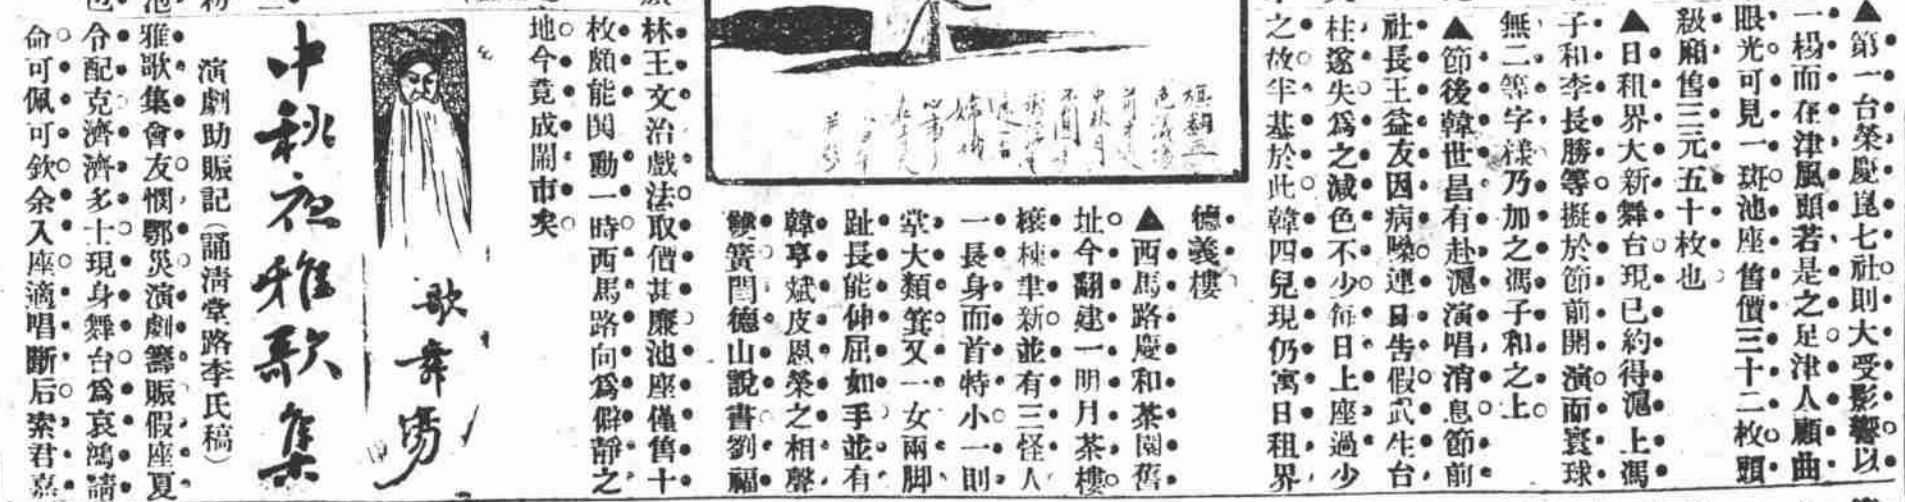 ▲第一台榮慶崑七社則大受影響以
一榻而在津風頭若是之足津人顧曲
眼光可見一斑池座舊價三十二枚頭
級廂舊三元五十枚也
▲日租界大新舞台現已約得滬上馮
子和李長勝等擬於節前開演而寰球
無二等字樣乃加之馮子和之上
▲節後韓世昌有赴滬演唱消息節前
社長王益友因病嗓連日告假武生台
柱遂失爲之減色不少每日上座過少
之故半基於此韓四兒現仍寓日租界
德義樓
▲西馬路慶和茶園舊
址今翻建一明月茶樓
榱棟聿新並有三怪人
一長身而首特小一則
掌大類箕又一女兩脚
趾長能伸屈如手並有
韓亨斌皮恩榮之相聲
雙簧閆德山說書劉福
林王文治戲法取價甚廉池座僅售十
枚頗能鬨動一時西馬路向爲僻靜之
地今竟成鬧市矣
歌舞場
中秋夜雅歌集
演劇助賑記（誦清堂路李氏稿）
雅歌集會友憫鄂災演劇籌賑假座夏
令配克濟濟多士現身舞台爲哀鴻請
命可佩可欽余入座適唱斷后索君嘉